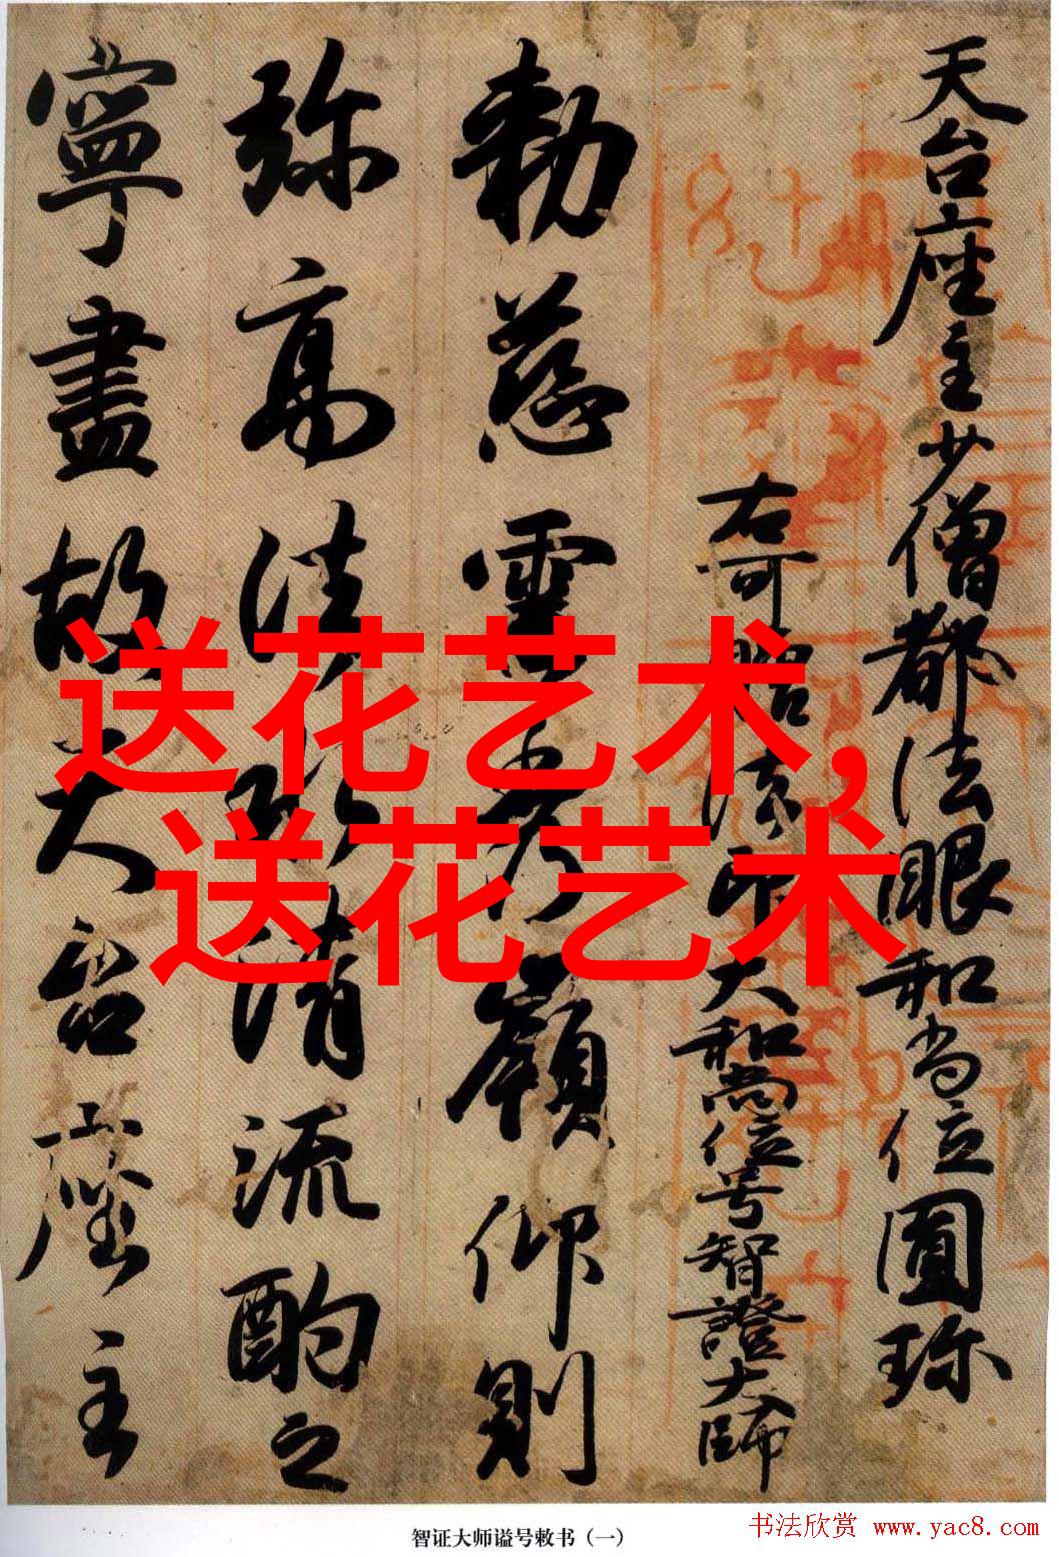 天台座主少僧都法眼和尚位圓珎
右可贈法印大和尚位号智證大師
勅慈雲秀嶺仰則
弥高法水清流酌之
寧盡故天台座主
送花艺术,
送花艺术
智证大师谥号敕书（一）
书法欣赏 www.yac8.com